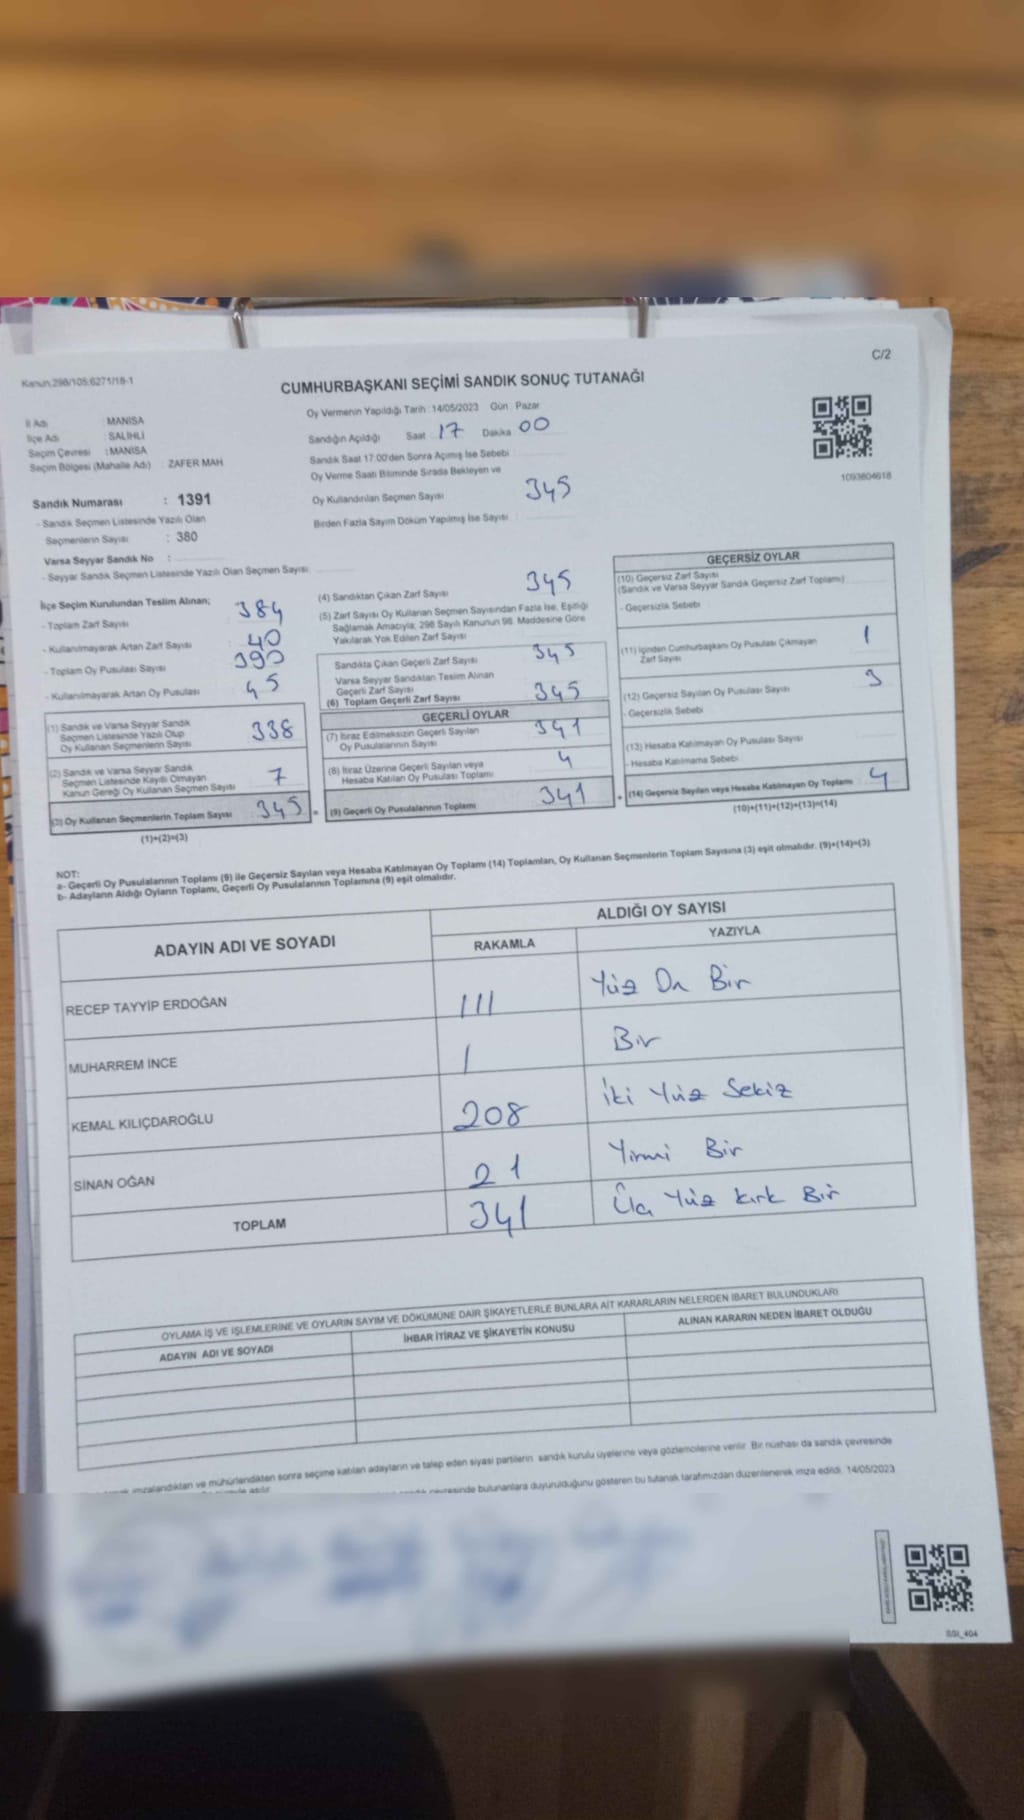 C/2
Kanun:298/105;6271/18-1
CUMHURBAŞKANI SEÇİMİ SANDIK SONUÇ TUTANAĞI
İl Adı : MANİSA
İlçe Adı : SALİHLİ
Seçim Çevresi : MANİSA
Seçim Bölgesi (Mahalle Adı) : ZAFER MAH
Oy Vermenin Yapıldığı Tarih : 14/05/2023 Gün : Pazar
Sandığın Açıldığı Saat : 17 Dakika : 00
Sandık Saat 17:00'den Sonra Açılmış İse Sebebi :
Oy Verme Saati Bitiminde Sırada Bekleyen ve
Oy Kullandırılan Seçmen Sayısı : 345
Birden Fazla Sayım Döküm Yapılmış İse Sayısı :
1093804618
Sandık Numarası : 1391
- Sandık Seçmen Listesinde Yazılı Olan
Seçmenlerin Sayısı : 380
Varsa Seyyar Sandık No :
- Seyyar Sandık Seçmen Listesinde Yazılı Olan Seçmen Sayısı:
İlçe Seçim Kurulundan Teslim Alınan;
- Toplam Zarf Sayısı : 384
- Kullanılmayarak Artan Zarf Sayısı : 40
- Toplam Oy Pusulası Sayısı : 390
- Kullanılmayarak Artan Oy Pusulası : 45
(1) Sandık ve Varsa Seyyar Sandık
Seçmen Listesinde Yazılı Olup
Oy Kullanan Seçmenlerin Sayısı 338
(2) Sandık ve Varsa Seyyar Sandık
Seçmen Listesinde Kayıtlı Olmayan
Kanun Gereği Oy Kullanan Seçmen Sayısı 7
(3) Oy Kullanan Seçmenlerin Toplam Sayısı 345 =
(1)+(2)=(3)
(4) Sandıktan Çıkan Zarf Sayısı : 345
(5) Zarf Sayısı Oy Kullanan Seçmen Sayısından Fazla İse, Eşitliği
Sağlamak Amacıyla; 298 Sayılı Kanunun 98. Maddesine Göre
Yakılarak Yok Edilen Zarf Sayısı :
Sandıkta Çıkan Geçerli Zarf Sayısı 345
Varsa Seyyar Sandıktan Teslim Alınan
Geçerli Zarf Sayısı
(6) Toplam Geçerli Zarf Sayısı 345
GEÇERLİ OYLAR
(7) İtiraz Edilmeksizin Geçerli Sayılan
Oy Pusulalarının Sayısı 341
(8) İtiraz Üzerine Geçerli Sayılan veya
Hesaba Katılan Oy Pusulası Toplamı 4
(9) Geçerli Oy Pusulalarının Toplamı 341 +
GEÇERSİZ OYLAR
(10) Geçersiz Zarf Sayısı
(Sandık ve Varsa Seyyar Sandık Geçersiz Zarf Toplamı)
- Geçersizlik Sebebi
(11) İçinden Cumhurbaşkanı Oy Pusulası Çıkmayan
Zarf Sayısı 1
(12) Geçersiz Sayılan Oy Pusulası Sayısı 3
- Geçersizlik Sebebi
(13) Hesaba Katılmayan Oy Pusulası Sayısı
- Hesaba Katılmama Sebebi
(14) Geçersiz Sayılan veya Hesaba Katılmayan Oy Toplamı 4
(10)+(11)+(12)+(13)=(14)
NOT:
a- Geçerli Oy Pusulalarının Toplamı (9) ile Geçersiz Sayılan veya Hesaba Katılmayan Oy Toplamı (14) Toplamları, Oy Kullanan Seçmenlerin Toplam Sayısına (3) eşit olmalıdır. (9)+(14)=(3)
b- Adayların Aldığı Oyların Toplamı, Geçerli Oy Pusulalarının Toplamına (9) eşit olmalıdır.
ADAYIN ADI VE SOYADI
ALDIĞI OY SAYISI
RAKAMLA YAZIYLA
RECEP TAYYİP ERDOĞAN 111 Yüz On Bir
MUHARREM İNCE 1 Bir
KEMAL KILIÇDAROĞLU 208 İki Yüz Sekiz
SİNAN OĞAN 21 Yirmi Bir
TOPLAM 341 Üç Yüz Kırk Bir
OYLAMA İŞ VE İŞLEMLERİNE VE OYLARIN SAYIM VE DÖKÜMÜNE DAİR ŞİKAYETLERLE BUNLARA AİT KARARLARIN NELERDEN İBARET BULUNDUKLARI
ADAYIN ADI VE SOYADI İHBAR İTİRAZ VE ŞİKAYETİN KONUSU ALINAN KARARIN NEDEN İBARET OLDUĞU
imzalandıktan ve mühürlendikten sonra seçime katılan adayların ve talep eden siyasi partilerin sandık kurulu üyelerine veya gözlemcilerine verilir. Bir nüshası da sandık çevresinde
çevresinde bulunanlara duyurulduğunu gösteren bu tutanak tarafımızdan düzenlenerek imza edildi. 14/05/2023